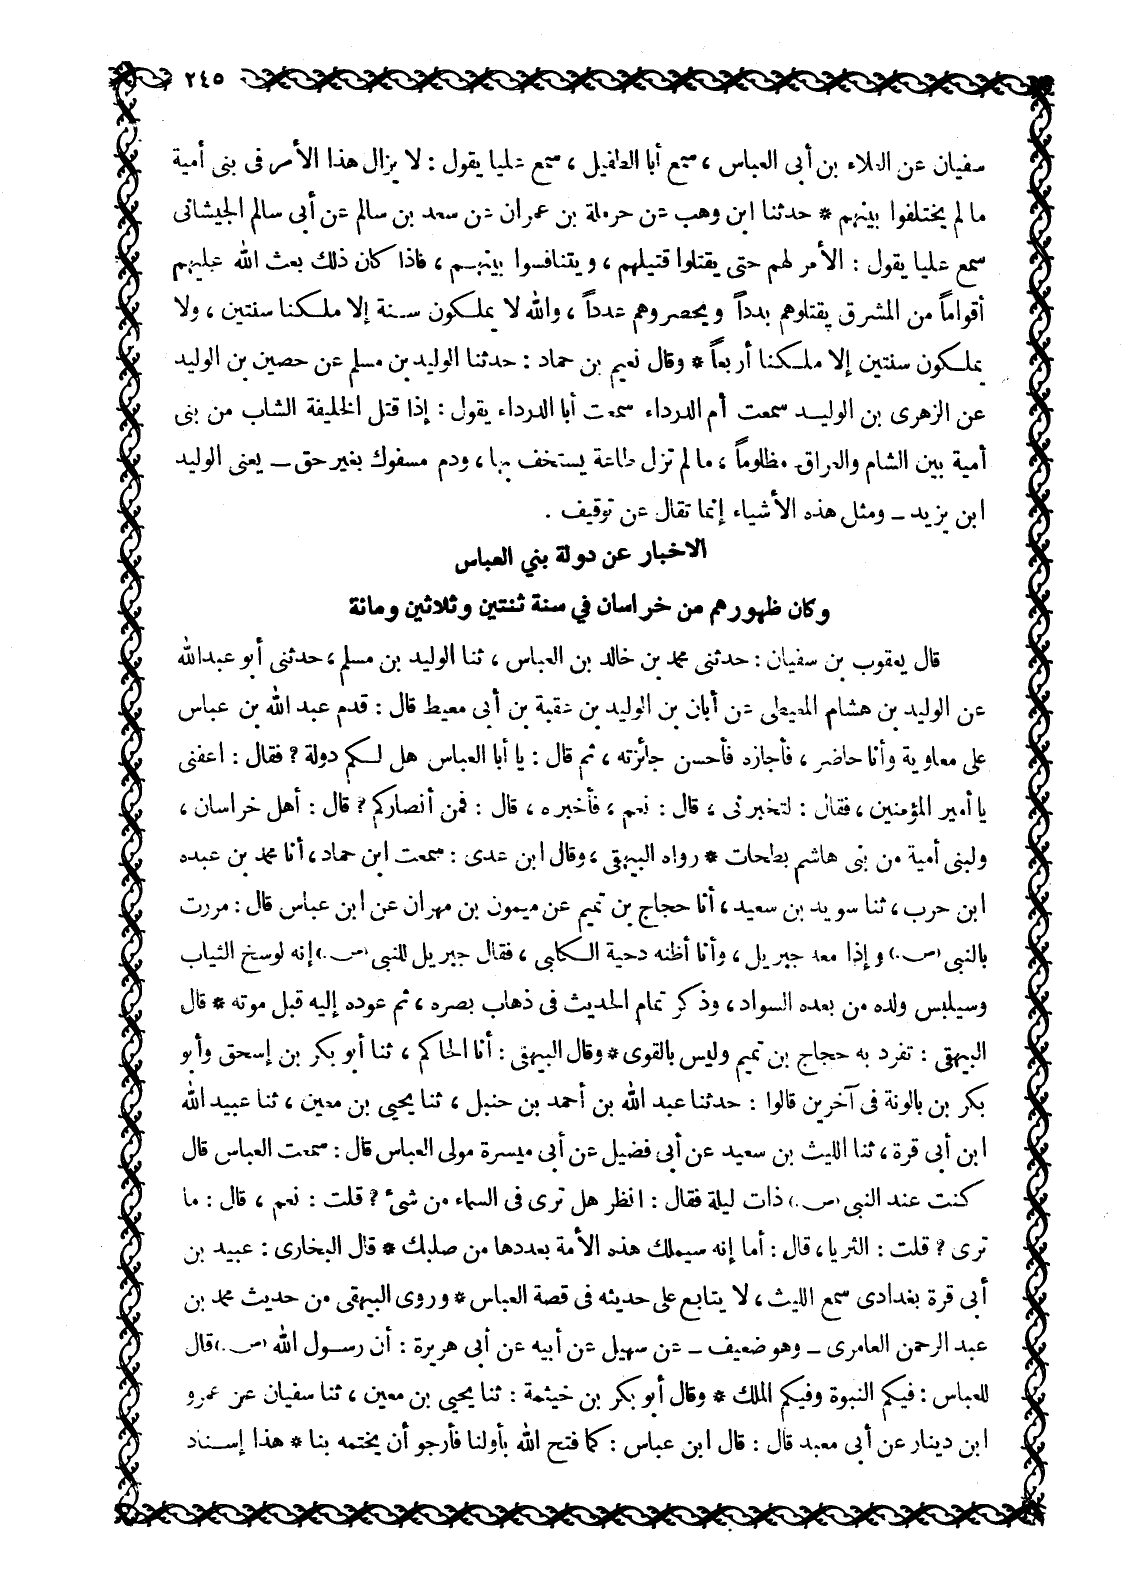 ٢٤٥
سفيان عن العلاء بن أبى العباس ، سمع أبا الطفيل ، سمع عليا يقول : لا يزال هذا الأمر فى بنى أمية
ما لم يختلفوا بينهم * حدثنا ابن وهب عن حرملة بن عمران عن سعد بن سالم عن أبى سالم الجيشانى
سمع عليا يقول : الأمر لهم حتى يقتلوا قتيلهم ، ويتنافسوا بينهم ، فاذا كان ذلك بعث الله عليهم
أقواماً من المشرق يقتلوهم بدداً ويحصروهم عدداً ، والله لا يملكون سنة إلا ملكنا سنتين ، ولا
يملكون سنتين إلا ملكنا أربعاً * وقال نعيم بن حماد : حدثنا الوليد بن مسلم عن حصين بن الوليد
عن الزهرى بن الوليد سمعت أم الدرداء سمعت أبا الدرداء يقول : إذا قتل الخليفة الشاب من بنى
أمية بين الشام والعراق مظلوماً ، ما لم تزل طاعة يستخف بها ، ودم مسفوك بغير حق – يعنى الوليد
ابن يزيد – ومثل هذه الأشياء إنما تقال عن توقيف .
الاخبار عن دولة بني العباس
وكان ظهورهم من خراسان في سنة ثنتين وثلاثين ومائة
قال يعقوب بن سفيان : حدثنى محمد بن خالد بن العباس ، ثنا الوليد بن مسلم ، حدثنى أبو عبدالله
عن الوليد بن هشام المعيطى عن أبان بن الوليد بن عقبة بن أبى معيط قال : قدم عبد الله بن عباس
على معاوية وأنا حاضر ، فأجازه فأحسن جائزته ، ثم قال : يا أبا العباس هل لكم دولة ? فقال : اعفنى
يا أمير المؤمنين ، فقال : لتخبرنى ، قال : نعم ، فأخبره ، قال : فمن أنصاركم ? قال : أهل خراسان ،
ولبنى أمية من بنى هاشم بطحات * رواه البيهقى ، وقال ابن عدى : سمعت ابن حماد ، أنا محمد بن عبده
ابن حرب ، ثنا سويد بن سعيد ، أنا حجاج بن تميم عن ميمون بن مهران عن ابن عباس قال : مررت
بالنبى (ص.) وإذا معه جبريل ، وأنا أظنه دحية الكلبى ، فقال جبريل للنبى (ص.) إنه لوسخ الثياب
وسيلبس ولده من بعده السواد ، وذكر تمام الحديث فى ذهاب بصره ، ثم عوده إليه قبل موته * قال
البيهقى : تفرد به حجاج بن تميم وليس بالقوى * وقال البيهقى : أنا الحاكم ، ثنا أبو بكر بن إسحق وأبو
بكر بن بالونة فى آخرين قالوا : حدثنا عبد الله بن أحمد بن حنبل ، ثنا يحيى بن معين ، ثنا عبيد الله
ابن أبى قرة ، ثنا الليث بن سعيد عن أبى فضيل عن أبى ميسرة مولى العباس قال : سمعت العباس قال
كنت عند النبى (ص.) ذات ليلة فقال : انظر هل ترى فى السماء من شىء ? قلت : نعم ، قال : ما
ترى ? قلت : الثريا ، قال : أما إنه سيملك هذه الأمة بعددها من صلبك * قال البخارى : عبيد بن
أبى قرة بغدادى سمع الليث ، لا يتابع على حديثه فى قصة العباس * وروى البيهقى من حديث محمد بن
عبد الرحمن العامرى – وهو ضعيف – عن سهيل عن أبيه عن أبى هريرة : أن رسول الله (ص.) قال
للعباس : فيكم النبوة وفيكم الملك * وقال أبو بكر بن خيثمة : ثنا يحيى بن معين ، ثنا سفيان عن عمرو
ابن دينار عن أبى معبد قال : قال ابن عباس : كما فتح الله بأولنا فأرجو أن يختمه بنا * هذا إسناد